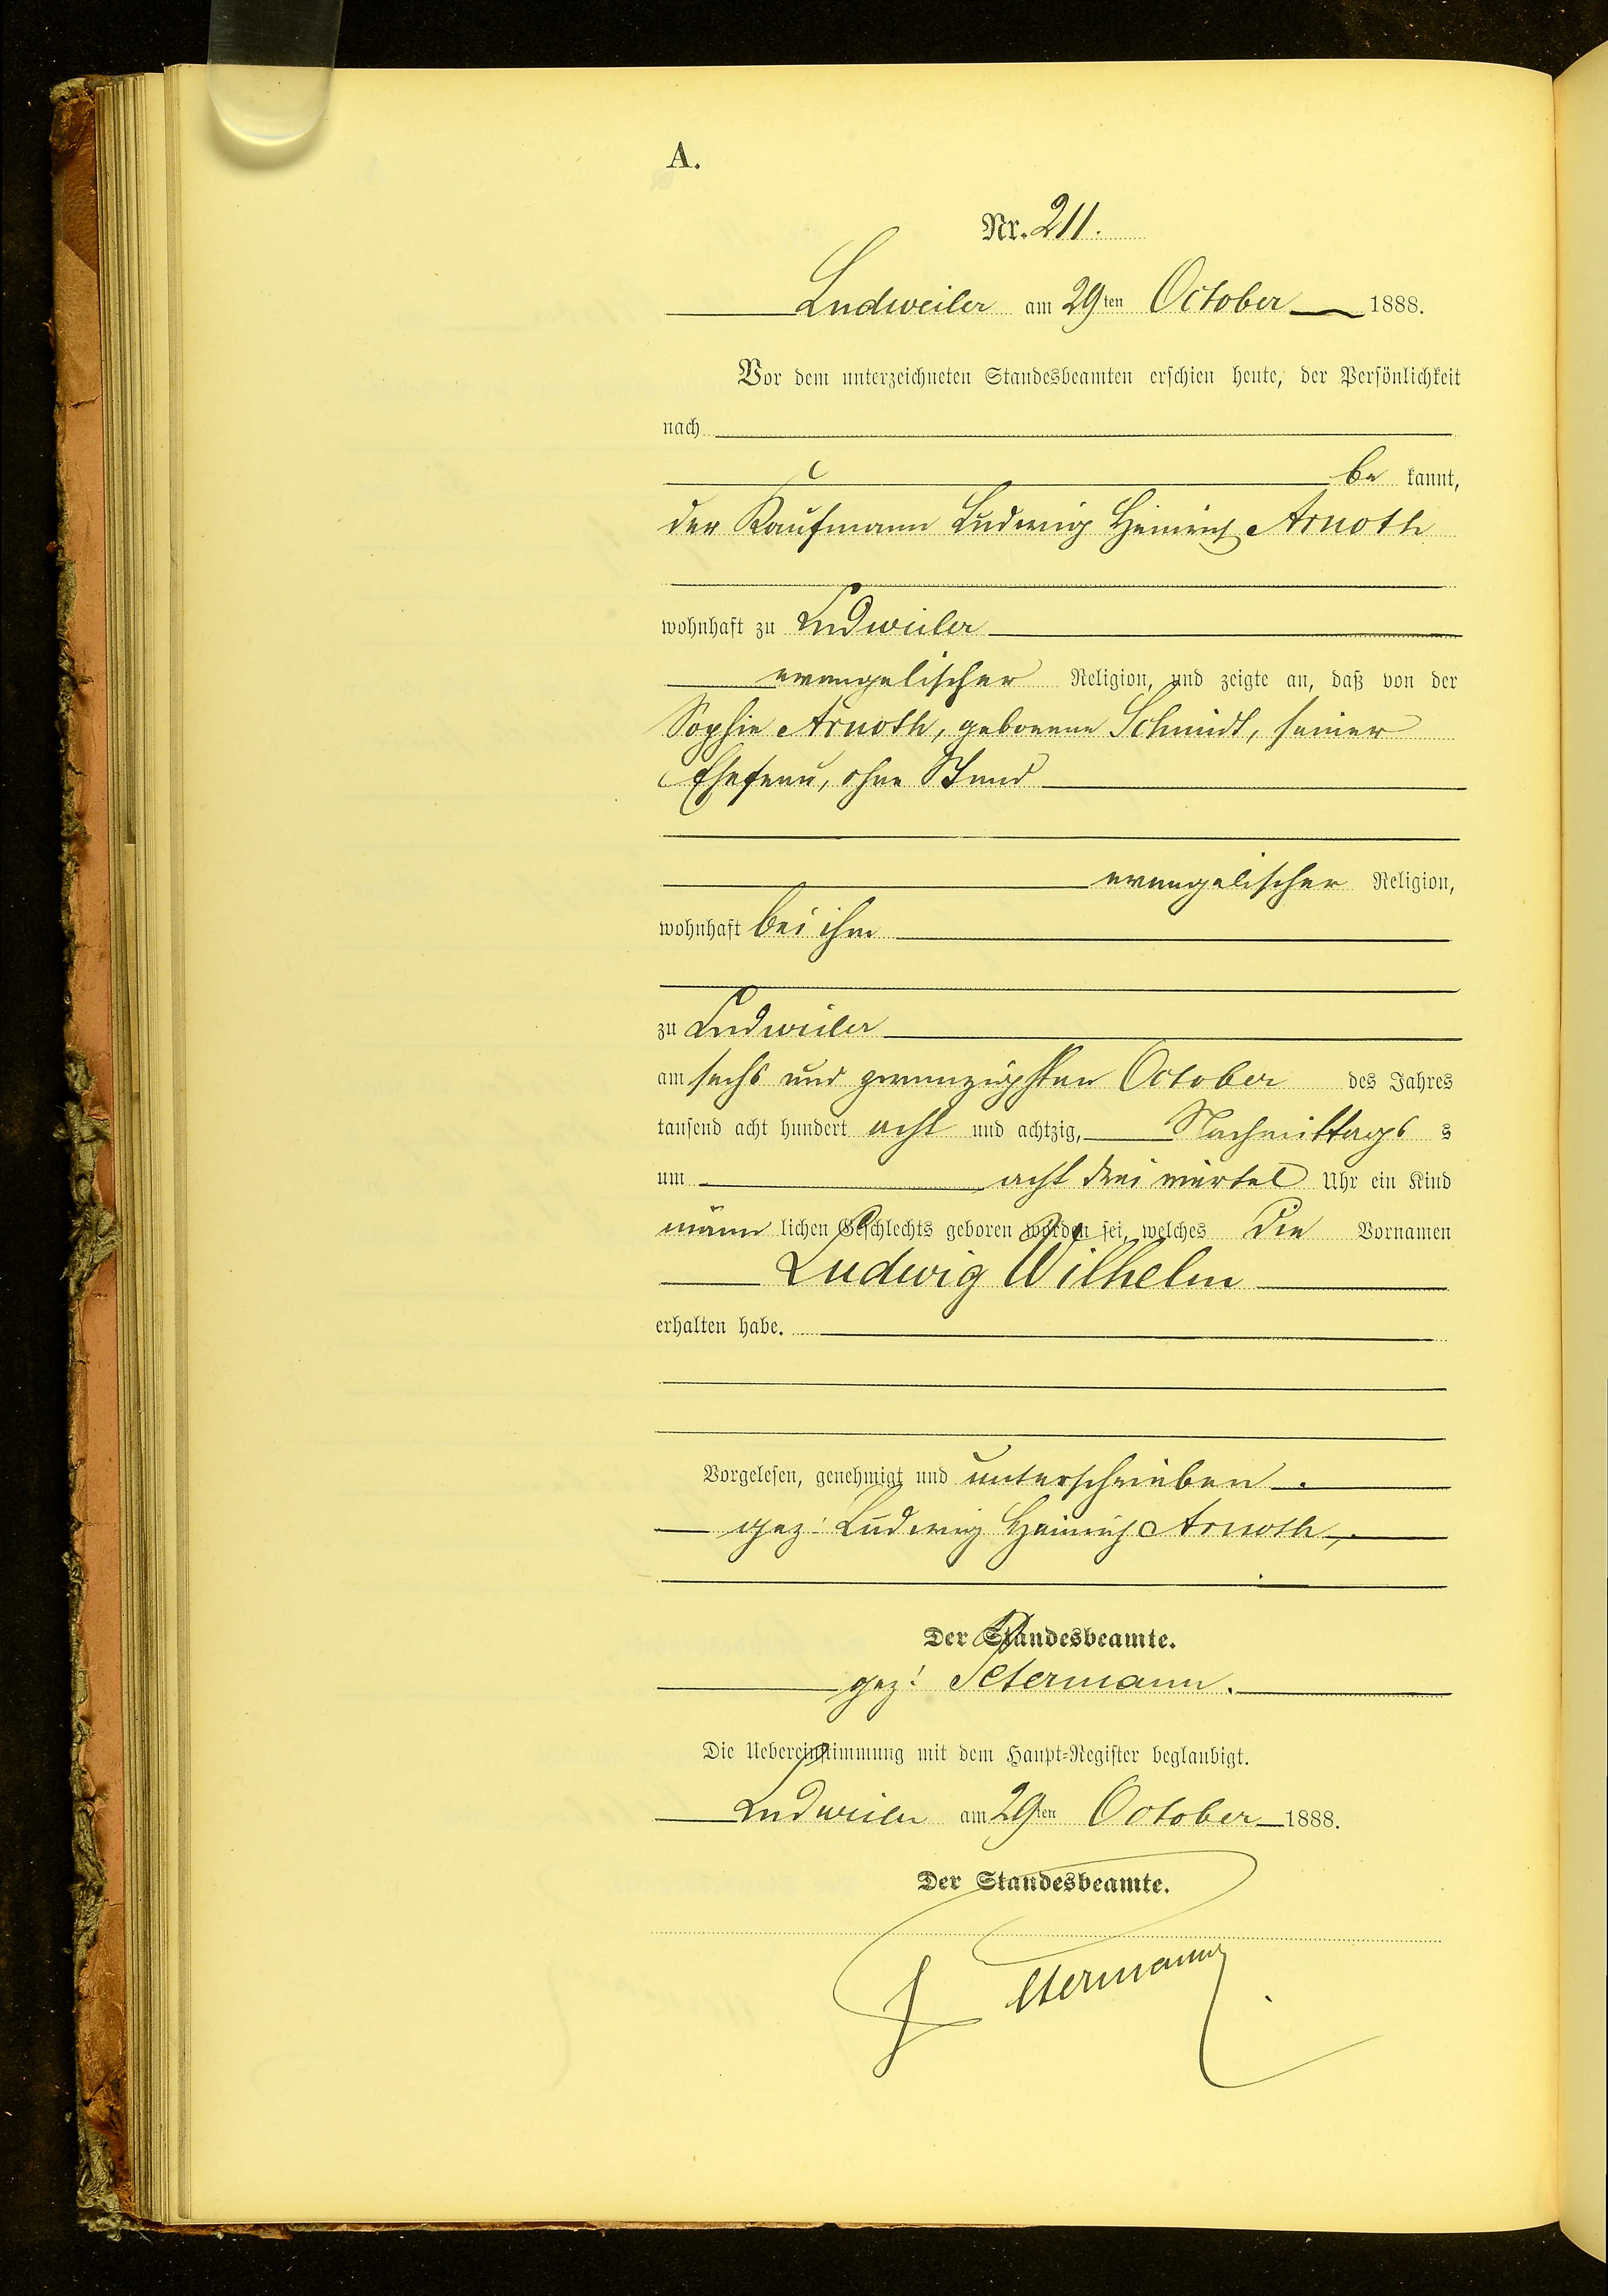 A.
Nr. 211.
Ludweiler am 29ten October 1888.
Vor dem unterzeichneten Standesbeamten erschien heute, der Persönlichkeit
nach
be kannt,
der Kaufmann Ludwig Heinrich Arnoth
wohnhaft zu Ludweiler
evangelischer Religion, und zeigte an, daß von der
Sophie Arnoth, geborene Schmidt, seiner
Ehefrau, ohne Stand
evangelischer Religion,
wohnhaft bei ihm
zu Ludweiler
am sechs und zwanzigsten October des Jahres
tausend acht hundert acht und achtzig, Nachmittags s
um acht drei viertel Uhr ein Kind
männ lichen Geschlechts geboren worden sei, welches die Vornamen
Ludwig Wilhelm
erhalten habe.
Vorgelesen, genehmigt und unterschrieben.
gez: Ludwig Heinrich Arnoth,
Der Standesbeamte.
gez: Petermann.
Die Uebereinstimmung mit dem Haupt-Register beglaubigt.
Ludweiler am 29ten October 1888.
Der Standesbeamte.
Petermann